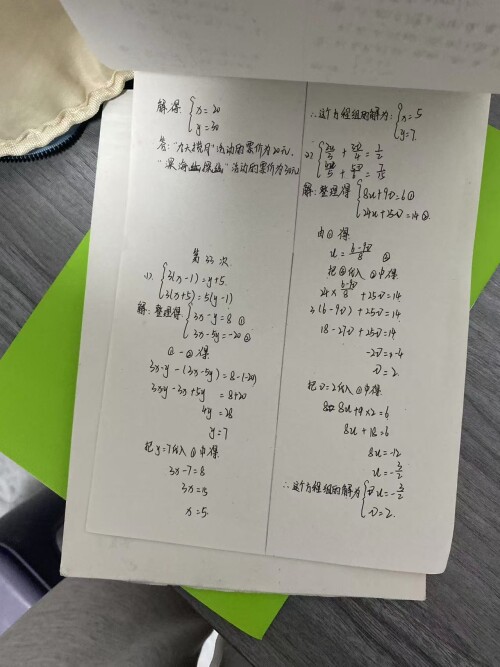 解得{x=20
y=30
答:"九天揽月"活动的票价为20元,
"深海幽探幽"活动的票价为30元.
第33次
1). {3(x-1)=y+5.
3(x+5)=5(y-1)
解:整理得{3x-y=8 ①
3x-5y=-20 ②
①-②得
3x-y-(3x-5y)=8-(-20)
3x-y-3x+5y=8+20
4y=28
y=7
把y=7代入①中得
3x-7=8
3x=15
x=5.
∴这个方程组的解为:{x=5
y=7.
2) {2u/3+3v/4=1/2
4u/5+5v/6=7/15
解:整理得{8u+9v=6①
24u+25v=14②.
由①得
u=6-9v/8 ③
把③代入②中得
24×6-9v/8+25v=14
3(6-9v)+25v=14
18-27v+25v=14
-2v=-4
v=2.
把v=2代入①中得
8u+9×2=6
8u+18=6
8u=-12
u=-3/2
∴这个方程组的解为{u=-3/2
v=2.